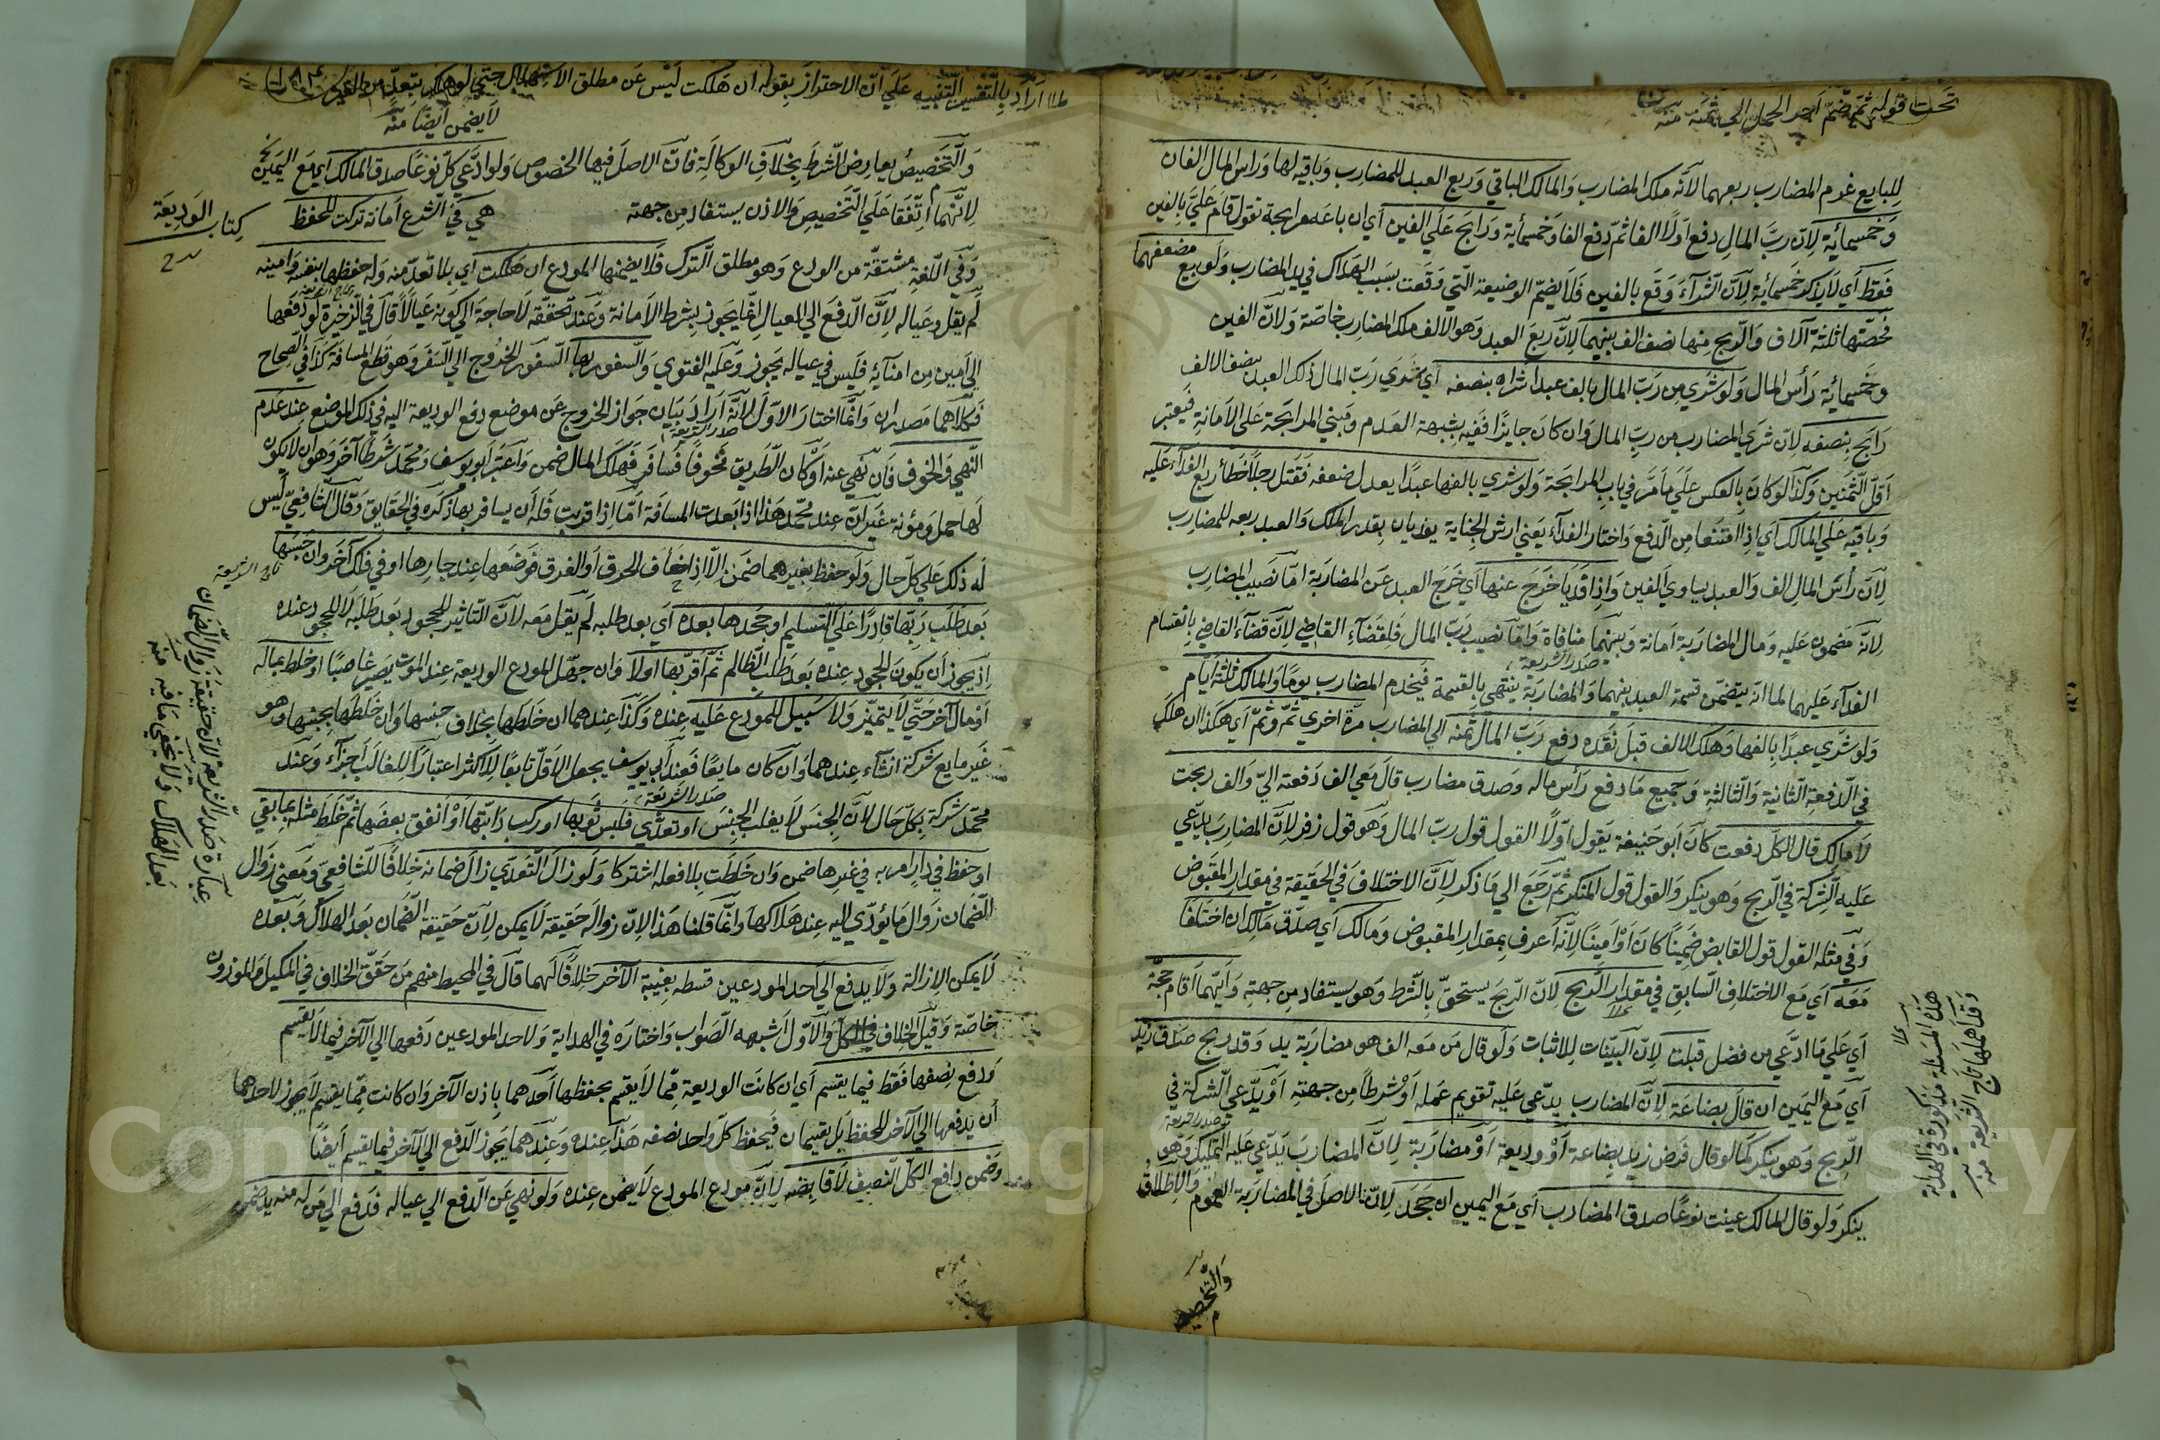 تحت قوله ثم ضمّ اجر الحمال الي ثمنه منه
للبايع غرم المضارب ربعهما لانه ملك المضارب والمالك الباقي وربع العبد للمضارب وباقيه لها ورأس المال الفان
وخمسمائة لانّ ربّ المال دفع اولا الفا ثمّ دفع الفا وخمسمأية ورابح علي الفين اي ان باعه مرابحة نقول قام عليّ بالفين
فقط اي لا يذكر خمسمائة لانّ الشراء وقع بالفين فلا يضمّ الوضيعة الّتي وقعت بسبب الهلاك في يد المضارب ولو بيع مضعفهما
فحصّتها ثلثة آلاف والربح منها نصف الف بينهما لانّ ربع العبد وهو الالف ملك المضارب خاصّة ولانّ الفين
وخمسمائية رأس المال ولو شري من ربّ المال بالف عبدا شراه بنصفه اي شري ربّ المال ذلك العبد بنصف الالف
رابح بنصفه لانّ شري المضارب من ربّ المال وان كان جايزا ففيه شبهة العدم ومبني المرابحة علي الامانة فيعتبر
اقلّ الثمنين وكذا لو كان بالعكس علي ما مرّ في باب المرابحة ولو شري بالفها عبدا يعدل ضعفه فقتل رجلا خطأ ربع الفداء عليه
وباقيه علي المالك اي اذا امتنعا من الدفع واختار الفداء يعني ارش الجناية يفديان بقدر الملك والعبد ربعه للمضارب
لانّ رأس المال الف والعبد يساوي الفين واذا فديا خرج عنها اي خرج العبد عن المضاربة امّا نصيب المضارب
لانّه مضمون عليه ومال المضاربة امانة وبينهما منافاة وامّا نصيب ربّ المال فلقضاء القاضي لانّ قضاء القاضي بانقسام
صدر الشريعة
الفداء عليهما لما انّه يتضمّن قسمة العبد بينهما والمضاربة ينتهي بالقسمة فيخدم المضارب يوما والمالك ثلثة ايّام
ولو شري عبدا بالفها وهلك الالف قبل نقده دفع ربّ المال ثمنه الي المضارب مرّة اخري ثمّ وثمّ اي هكذا ان هلك
في الدفعة الثانية والثالثة وجميع ما دفع رأس ماله وصدق مضارب قال معي الف دفعته اليّ والف ربحت
لا مالك قال الكلّ دفعت كان ابو حنيفة يقول اوّلا القول قول ربّ المال وهو قول زفر لانّ المضارب يدّعي
عليه الشركة في الربح وهو ينكر والقول قول المنكر ثمّ رجع الي ما ذكر لانّ الاختلاف في الحقيقة في مقدار المقبوض
وفي مثله القول قول القابض ضمينا كان او امينا لانّه اعرف بمقدار المقبوض ومالك اي صدّق مالك ان اختلفا
معه اي مع الاختلاف السابق في مقدار الربح لانّ الربح يستحقّ بالشرط وهو يستفاد من جهته وايّهما اقام حجّة
اي علي ما ادّعي من فضل قبلت لانّ البيّنات للاثبات ولو قال من معه الف هو مضاربة يد وقد ربح صدّق زيد
اي مع اليمين ان قال بضاعة لانّ المضارب يدّعي عليه تقويم عمله او شرطا من جهته او يدّعي الشركة في
صدر الشريعة
الربح وهو ينكر كما لو قال قرض زيد بضاعة او وديعة او مضاربة لانّ المضارب يدّعي عليه التمليك وهو
ينكر ولو قال المالك عينت نوعا صدق المضارب اي مع اليمين ان جحد لانّ الاصل في المضاربة العموم والاطلاق
هذه المسئلة مذكورة في الهداية
وقد اهملها تاج الشريعة منه
والتخصيص
اراد بالتفسير التنبيه علي انّ الاحتراز بقوله ان هلكت ليس عن مطلق الاستهلاك حتي لو هلك بتعدّ من الغير
لا يضمن ايضا منه
والتخصيص يعارض الشرط بخلاف الوكالة فانّ الاصل فيها الخصوص ولو ادّعي كلّ نوعا صدق المالك اي مع اليمين
لانّهما اتّفقا علي التخصيص والاذن يستفاد من جهته هي في الشرع امانة تركت للحفظ
كتاب الوديعة
وفي اللغة مشتقّة من الودع وهو مطلق الترك فلا يضمنها المودع ان هلكت اي بلا تعدّ منه وله حفظها بنفسه وامينه
لم يقل وعياله لانّ الدفع الي العيال انّما يجوز بشرط الامانة وعند تحقّقه لا حاجة الي كونه عيالا قال في الذخيرة لو دفعها
الي امين من امنائه فليس في عياله يجوز وعليه الفتوي والسفور بها السفور الخروج الي السفر وهو قطع المسافة كذا في الصحاح
فكلاهما مصدران وانّما اختار الاوّل لانّه اراد بيان جواز الخروج عن موضع دفع الوديعة اليه في ذلك الموضع عند عدم
صدر الشريعة
النهي والخوف فان نهي عنه او كان الطريق مخوفا فسافر فهلك المال ضمن واعتبر ابو يوسف ومحمّد شرطا آخر وهو ان لا يكون
لها حمل ومؤنة غير انّ عند محمّد هذا اذا بعدت المسافة امّا اذا قربت فله ان يسافر بها ذكره في الحقايق وقال الشافعيّ ليس
له ذلك علي كلّ حال ولو حفظ بغيرهما ضمن الّا اذا خاف الحرق او الغرق فوضعها عند جارها او في فلك آخر وان حبسها
تاج الشريعة
بعد طلب ربّها قادرا علي التسليم او جحدها بعده اي بعد طلبه لم يقل معه لانّ التاثير للجحود بعد طلبه لا للجحود عنده
اذ يجوز ان يكون الجحود عنده بعد طلب الظالم ثمّ اقرّ بها اولا وان جهّل المودع الوديعة عند الموت يصير غاصبا او خلط بماله
او مال آخر حتّي لا يتميّز ولا سبيل للمودع عليه عنده وكذا عندهما ان خلطها بخلاف جنسها وان خلطها بجنسها وهو
غير مايع شركة انشاء عندهما وان كان مايعا فعند ابي يوسف يجعل الاقلّ تابعا للاكثر اعتبارا للغالب اجزاء وعند
محمّد شركة بكلّ حال لانّ الجنس لا يغلب الجنس او تعدّي فلبس ثوبها او ركب دابّتها او انفق بعضها ثمّ خلط مثله بما بقي
صدر الشريعة
او حفظ في دار امر به في غيرها ضمن وان خلطت بلا فعله اشتركا ولو زال التعدّي زال ضمانه خلافا للشافعيّ ومعني زوال
الضمان زوال ما يؤدّي اليه عند هلاكها وانّما قلنا هذا لانّ زواله حقيقة لا يمكن لانّ حقيقة الضمان بعد الهلاك وبعده
لا يمكن الازالة ولا يدفع الي احد المودعين قسطه بغيبة الآخر خلافا لهما قال في المحيط منهم من حقّق الخلاف في المكيل والموزون
خاصّة وقيل الخلاف في الكلّ والاوّل اشبه الصواب واختاره في الهداية ولاحد المودعين دفعها الي الآخر فيما لا يقسم
ودفع نصفها فقط فيما يقسم اي ان كانت الوديعة ممّا لا يقسم يحفظها احدهما باذن الآخر وان كانت ممّا يقسم لا يجوز لاحدهما
ان يدفعها الي الآخر للحفظ بل يقسمان فيحفظ كلّ واحد نصفه هذا عنده وعندهما يجوز الدفع الي الآخر فيما يقسم ايضا
وضمن دافع الكلّ النصف لا قابضه لانّ مودع المودع لا يضمن عنده ولو نهي عن الدفع الي عياله فدفع الي من له منه بدّ ضمن
عبارة صدر الشريعة لانّ حقيقة زوال الضمان
بعد الهلاك ولا يخفي ما فيه منه
Copyright © King Saud University